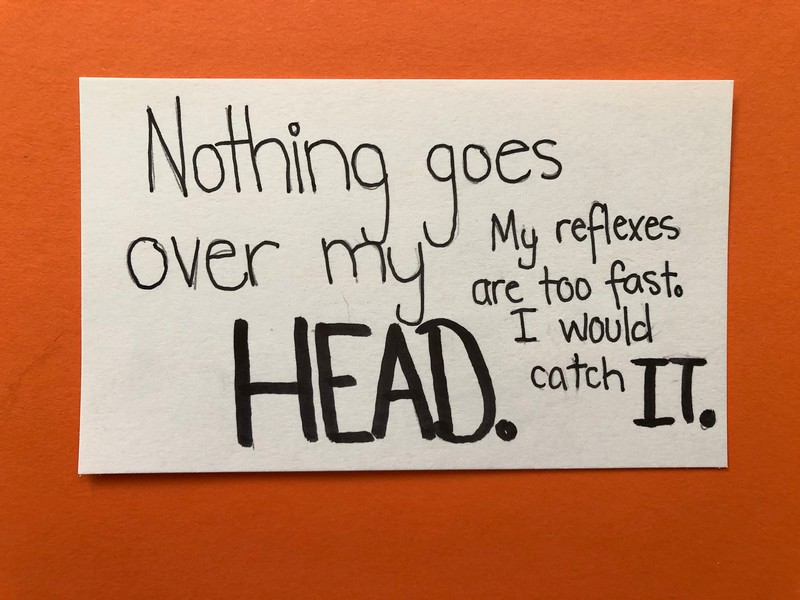 Nothing goes
over my
HEAD.
My reflexes
are too fast.
I would
catch IT.